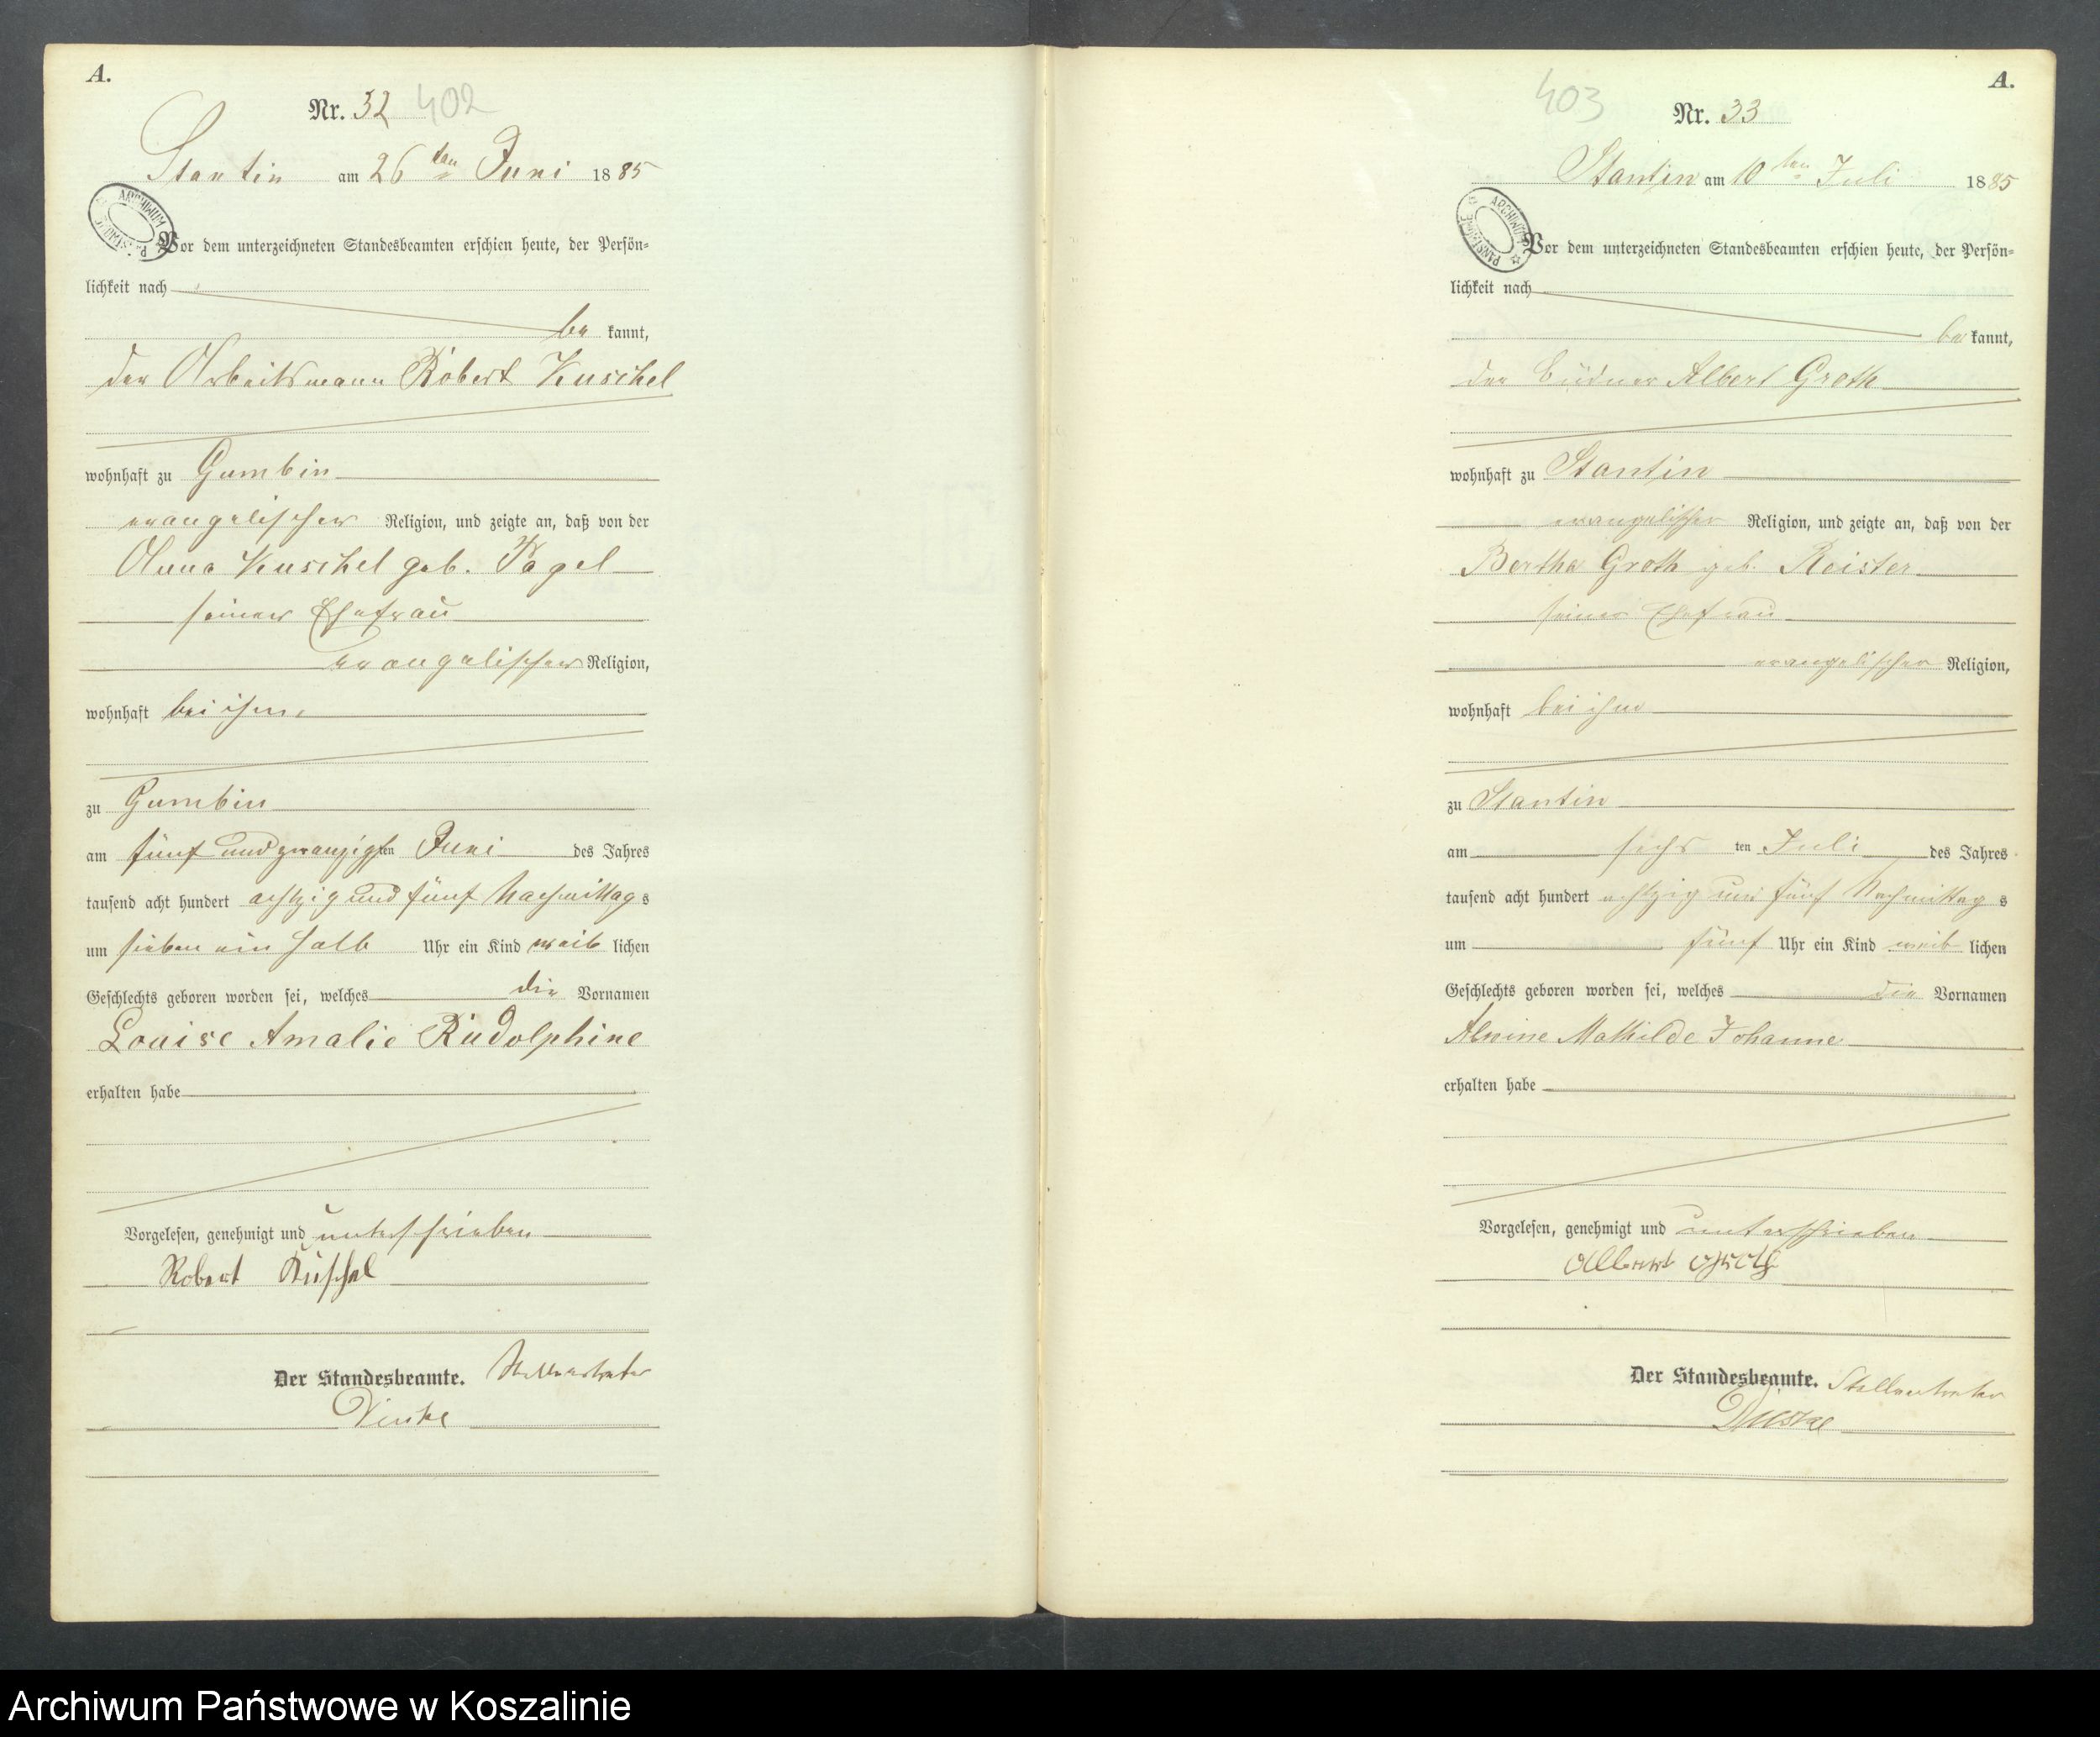 A.
Nr. 32 402
Stantin am 26 ten Juni 1885
ARCHIWUM PAŃSTWOWE
Vor dem unterzeichneten Standesbeamten erschien heute, der Persön=
lichkeit nach
be kannt,
der Arbeitsmann Robert Kuschel
wohnhaft zu Gumbin
evangelischer Religion, und zeigte an, daß von der
Anna Kuschel geb. Pagel
seiner Ehefrau
evangelischer Religion,
wohnhaft bei ihm,
zu Gumbin
am fünf und zwanzigsten Juni des Jahres
tausend acht hundert achtzig und fünf Nachmittags
um sieben ein halb Uhr ein Kind weib lichen
Geschlechts geboren worden sei, welches die Vornamen
Louise Amalie Rudolphine
erhalten habe
Vorgelesen, genehmigt und unterschrieben
Robert Kuschel
Der Standesbeamte. Stellvertreter
A.
403
Nr. 33
Stantin am 10 ten Juli 1885
ARCHIWUM PAŃSTWOWE
Vor dem unterzeichneten Standesbeamten erschien heute, der Persön=
lichkeit nach
be kannt,
der Büdner Albert Groth
wohnhaft zu Stantin
evangelischer Religion, und zeigte an, daß von der
Bertha Groth geb. Reister
seiner Ehefrau
evangelischer Religion,
wohnhaft bei ihm
zu Stantin
am sechs ten Juli des Jahres
tausend acht hundert achtzig und fünf Nachmittag s
um fünf Uhr ein Kind weib lichen
Geschlechts geboren worden sei, welches die Vornamen
Alwine Mathilde Johanne
erhalten habe
Vorgelesen, genehmigt und unterschrieben
Albert Groth
Der Standesbeamte. Stellvertreter
Archiwum Państwowe w Koszalinie